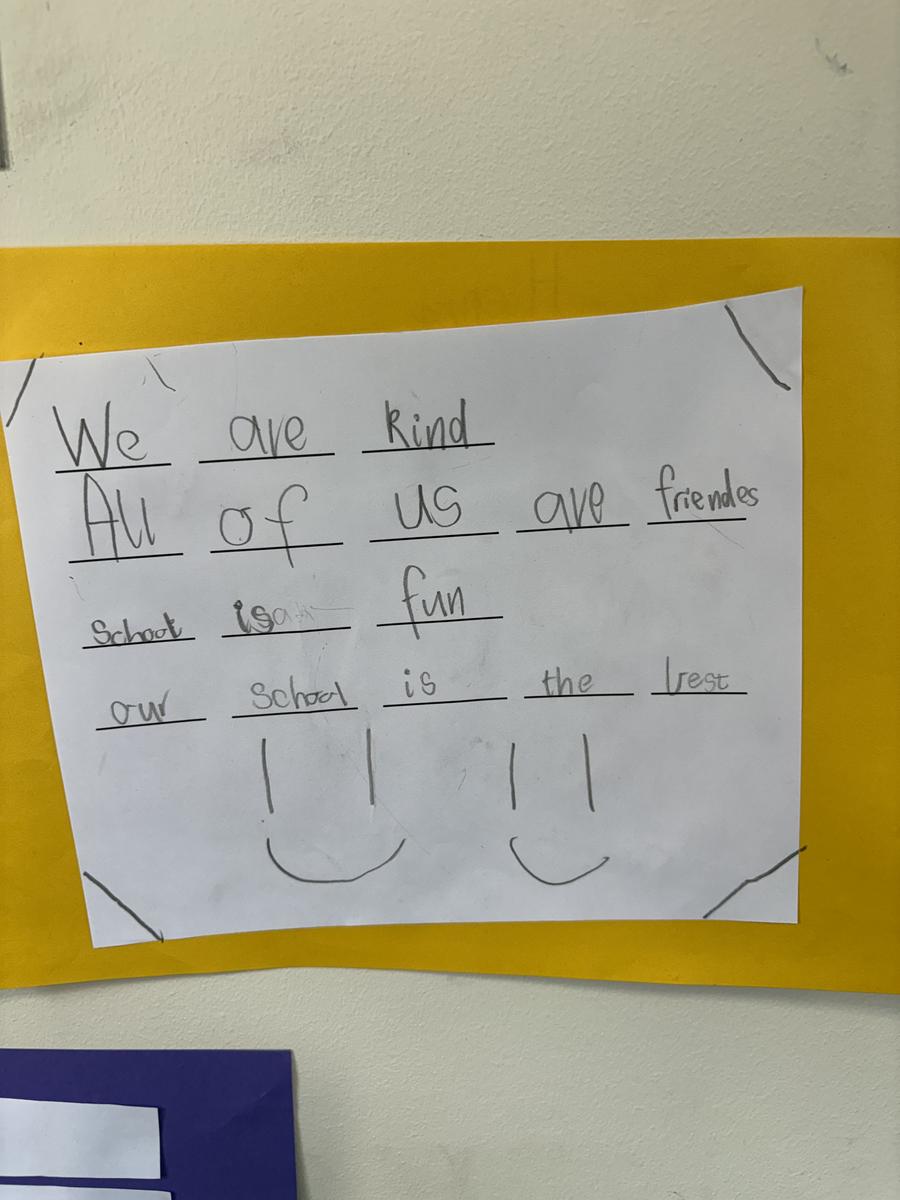 We are kind
All of us are friendes
School is fun
our school is the best